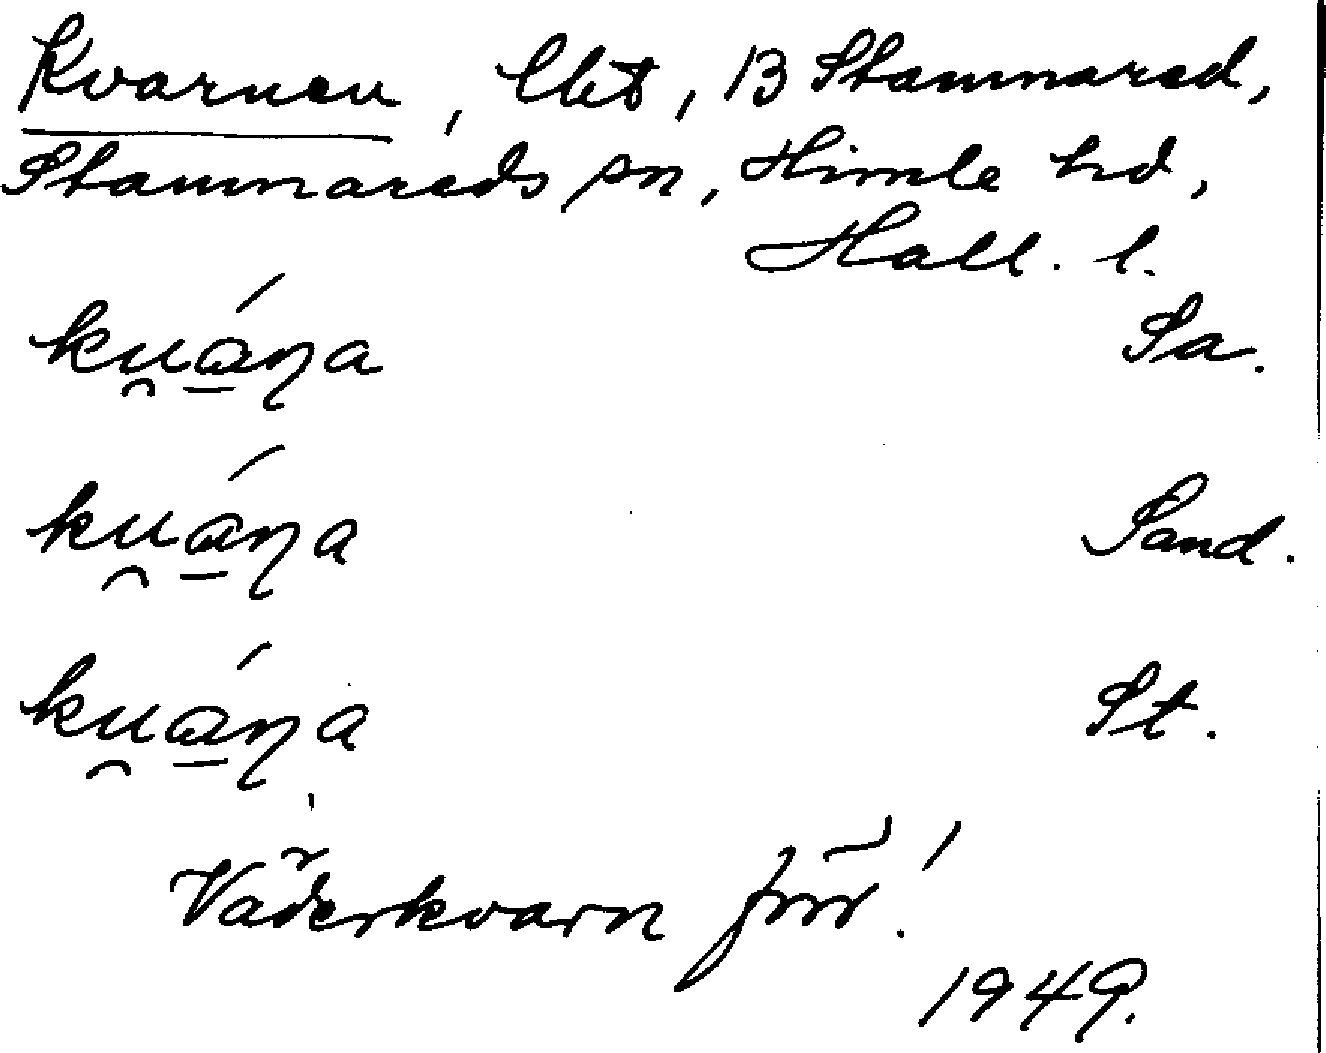 Kvarnen, lht, 13 Stamnared,
Stamnareds sn, Himle hd,
Hall. l.
ku̯á̱ŋa Sa.
ku̯á̱ŋa Sand.
ku̯á̱ŋa St.
Väderkvarn förr!
1949.